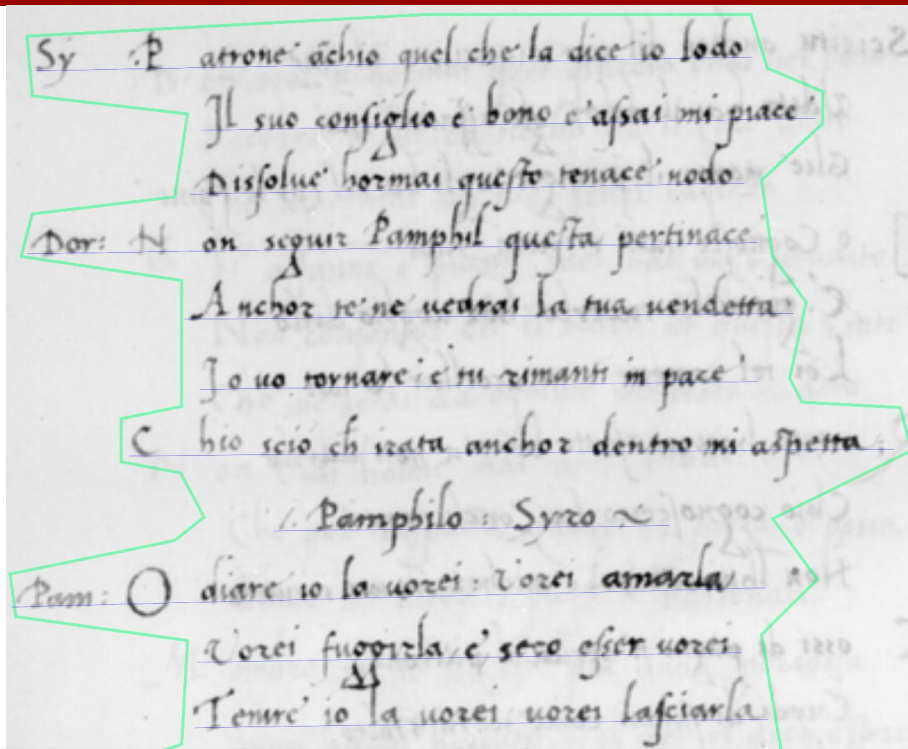 Sy .P atrone āchio quel che la dice io lodo
Il suo consiglio è bono e assai mi piace
Dissolue hormai questo tenace nodo
Dor: N on seguir Pamphil questa pertinace
Anchor te ne uedrai la tua uendetta
Io uo tornare e tu rimanti in pace
C hio scio ch̄ irata anchor dentro mi aspetta;
/. Pamphilo: Syro ~
Pam: O diare io la uorei: Vorei amarla
Vorei fuggirla, e seco esser uorei
Temre io la uorei uorei lasciarla